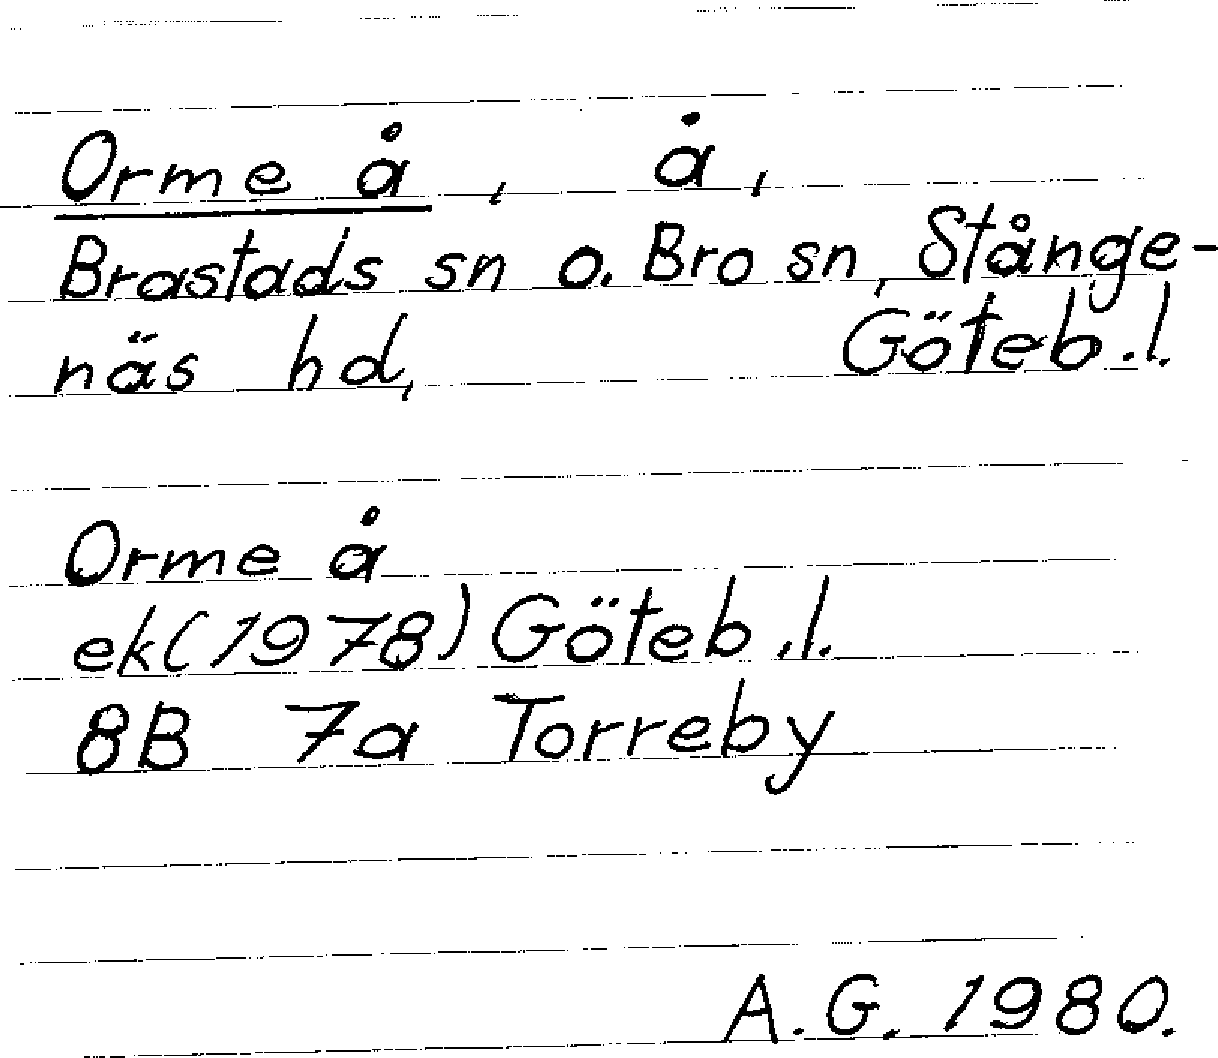 Orme å, å,
Brastads sn o. Bro sn, Stånge-
näs hd, Göteb.l.
Orme å
ek(1978) Göteb.l.
8B 7a Torreby
A.G. 1980.